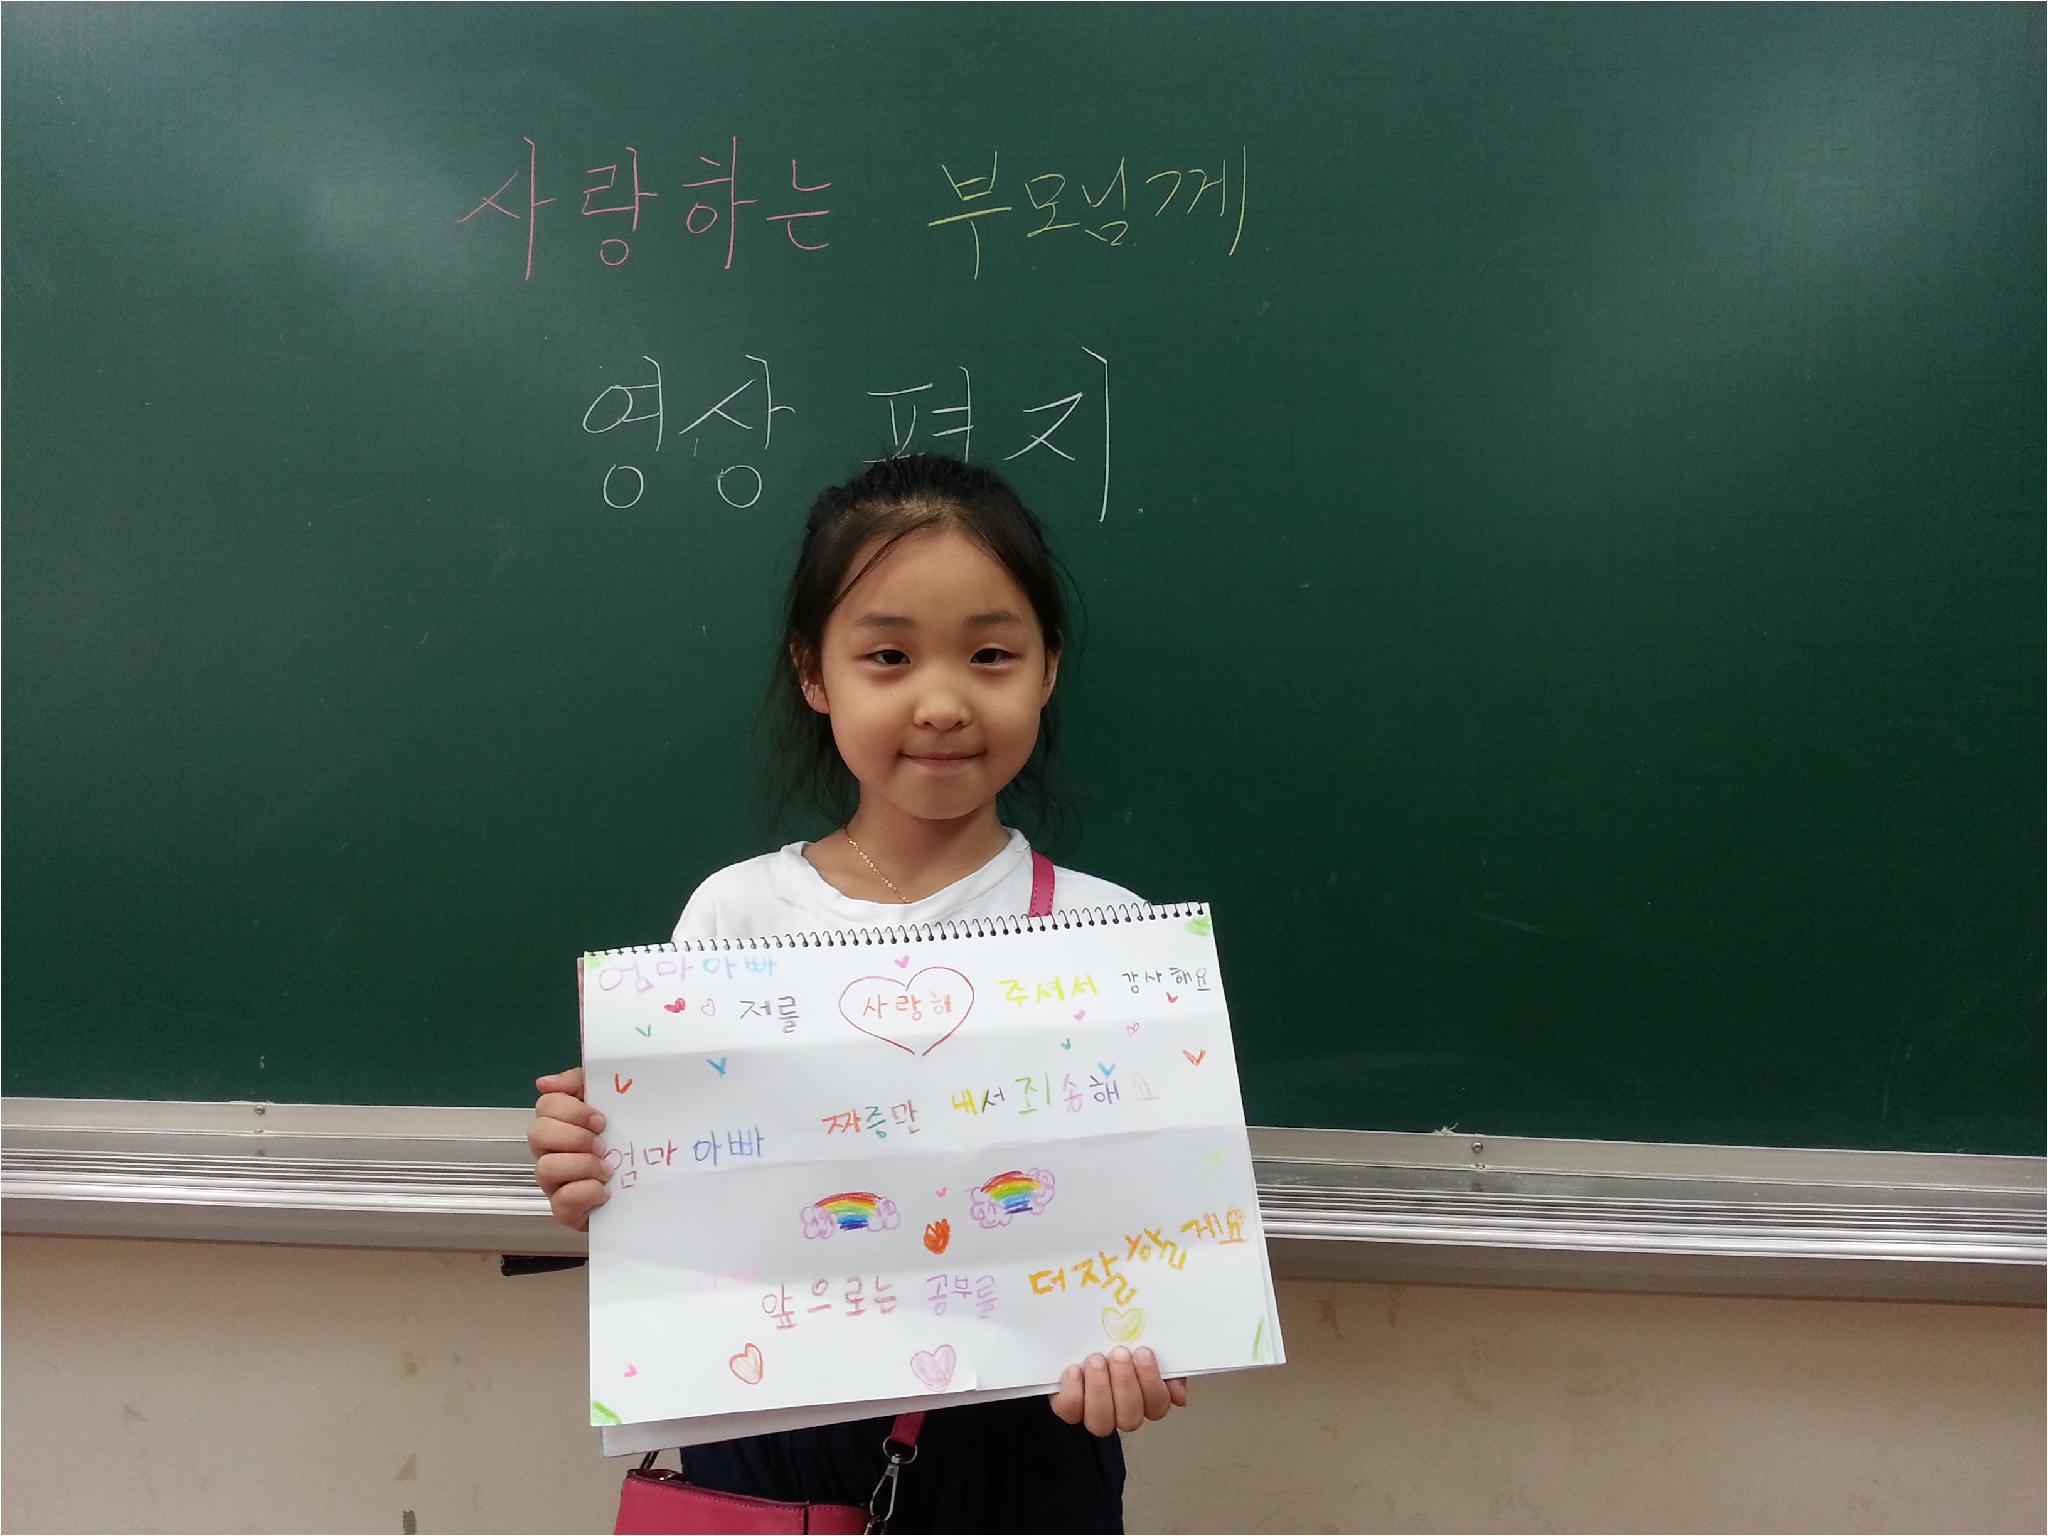 사랑하는 부모님께
영상 편지
엄마 아빠
저를 사랑해 주셔서 감사해요
엄마 아빠 짜증만 내서 죄송해요
앞으로는 공부를 더 잘 할게요